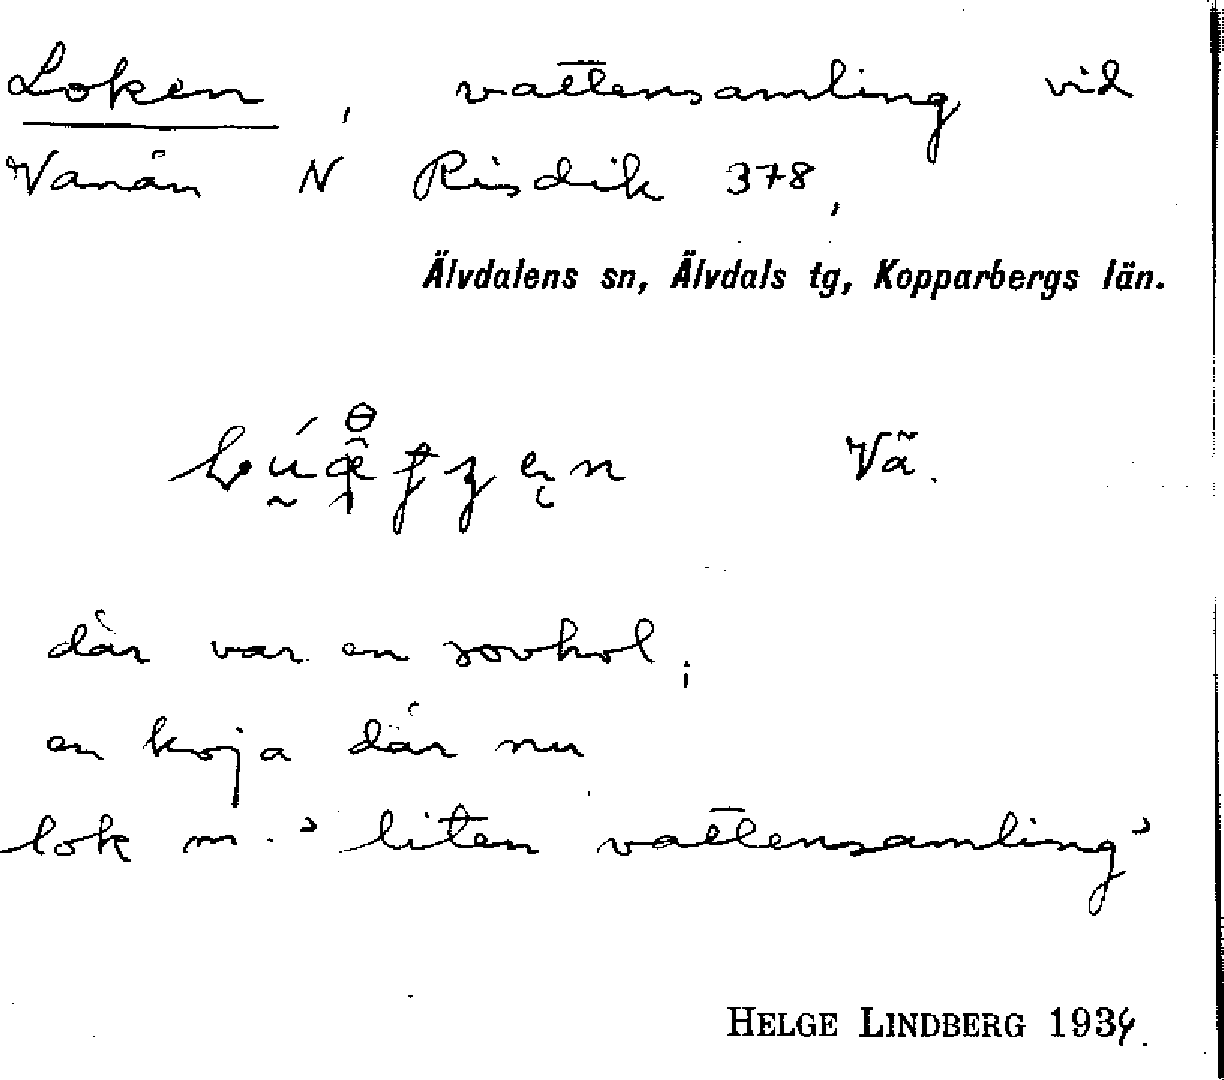 Loken, vattensamling vid
Vanån N Risdik 378,
Älvdalens sn, Älvdals tg, Kopparbergs län.
Vä.
där var en sovhol;
en koja där nu
lok m. ' liten vattensamling '
HELGE LINDBERG 1934.